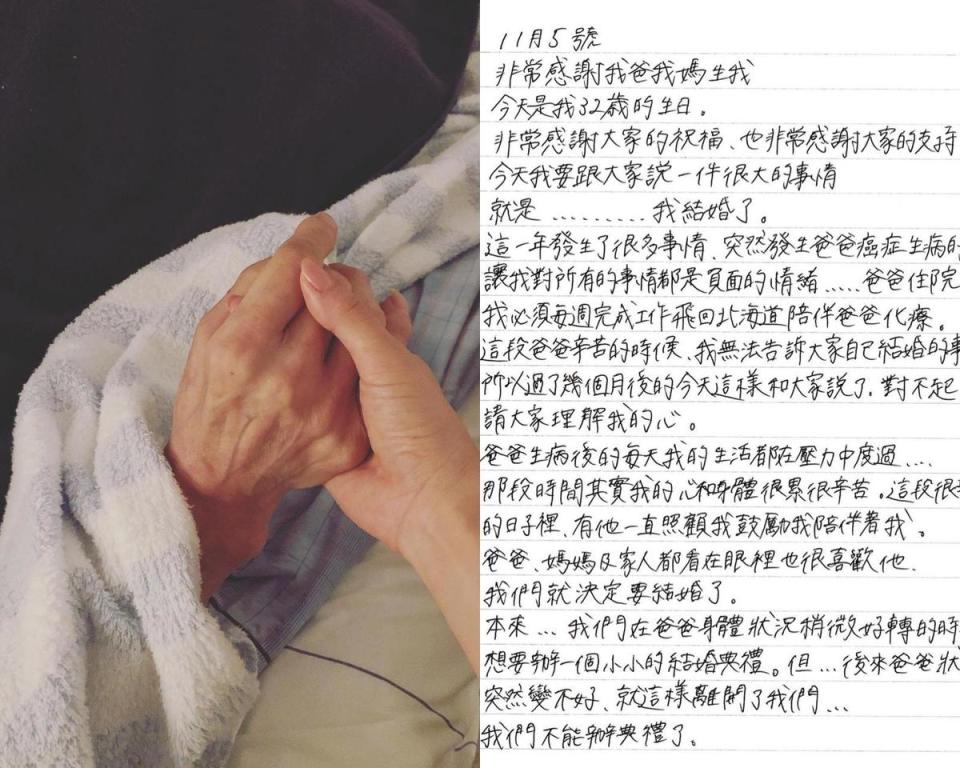 11月5號
非常感謝我爸我媽生我
今天是我32歲的生日。
非常感謝大家的祝福、也非常感謝大家的支持
今天我要跟大家說一件很大的事情
就是………我結婚了。
這一年發生了很多事情、突然發生爸爸癌症生病的
讓我對所有的事情都是負面的情緒.....爸爸住院
我必須每週完成工作飛回北海道陪伴爸爸化療。
這段爸爸辛苦的時候、我無法告訴大家自己結婚的事
所以過了幾個月後的今天這樣和大家說了.對不起
請大家理解我的心。
爸爸生病後的每天我的生活都在壓力中度過....
那段時間其實我的心和身體很累很辛苦.這段很
的日子裡、有他一直照顧我鼓勵我陪伴著我、。
爸爸、媽媽及家人都看在眼裡也很喜歡他.
我們就決定要結婚了。
本來...我們在爸爸身體狀況稍微好轉的時
想要辦一個小小的結婚典禮。但...後來爸爸狀
突然變不好、就這樣離開了我們...
我們不能辦典禮了。